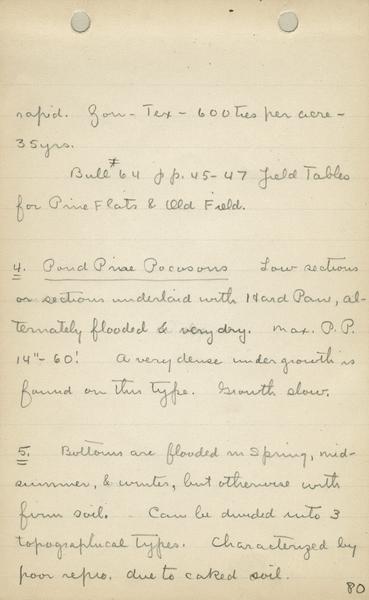 rapid. Gon - Tex - 600 ties per acre -
35 yrs.
Bull #64 pp. 45-47 Yield Tables
for Pine Flats & Old Field.
4. Pond Pine Pocosons Low sections
or sections underlaid with Hard Pan, al-
ternately flooded & very dry. Max. P.P.
14"- 60'. A very dense undergrowth is
found on this type. Growth slow.
5. Bottoms are flooded in Spring, mid-
summer, & winter, but otherwise with
firm soil. Can be divided into 3
topographical types. Characterized by
poor repro. due to caked soil.
80